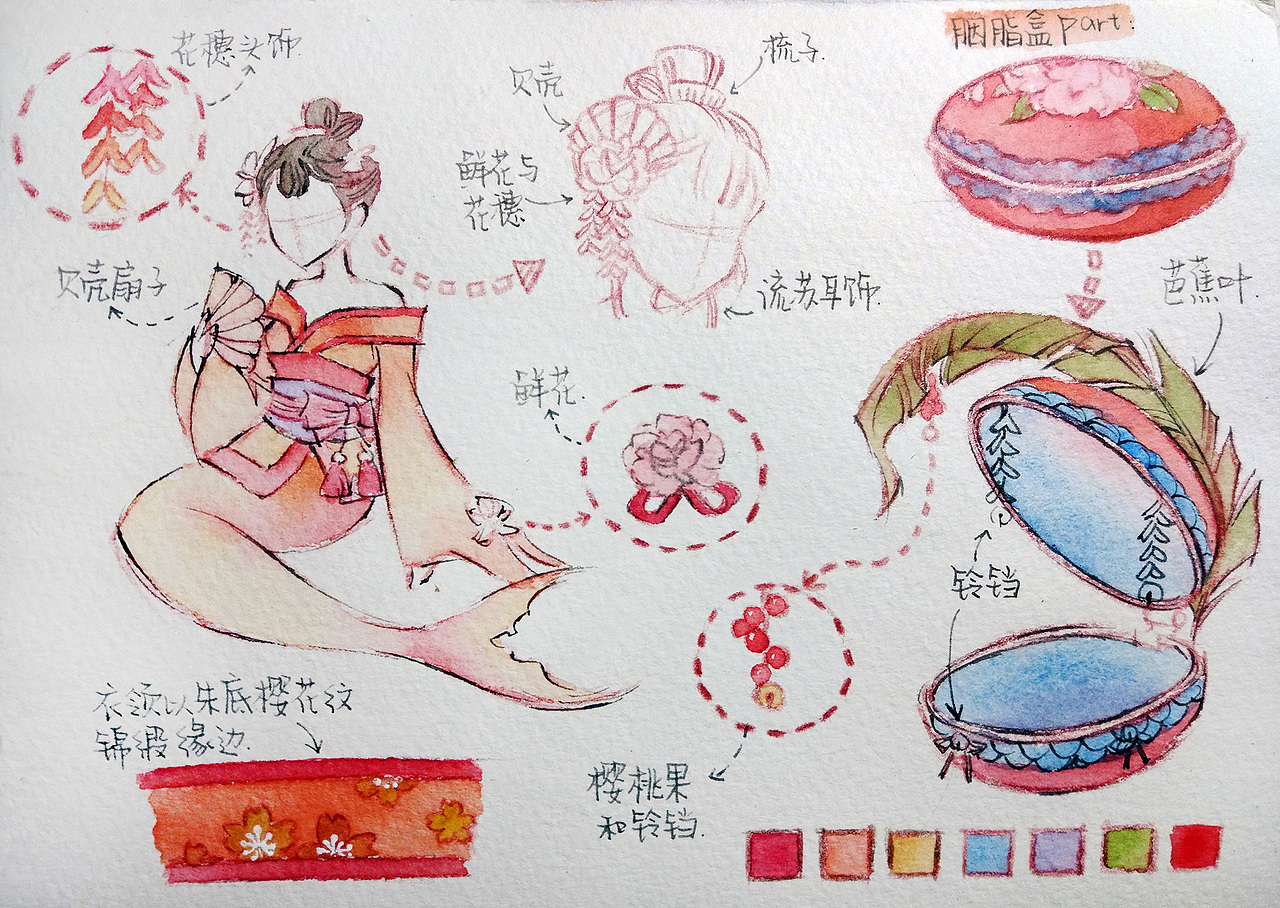 花穗头饰
贝壳
梳子
胭脂盒part:
鲜花与
花穗
贝壳扇子
流苏耳饰
芭蕉叶
鲜花
铃铛
衣领以朱底樱花纹
锦缎缘边
樱桃果
和铃铛